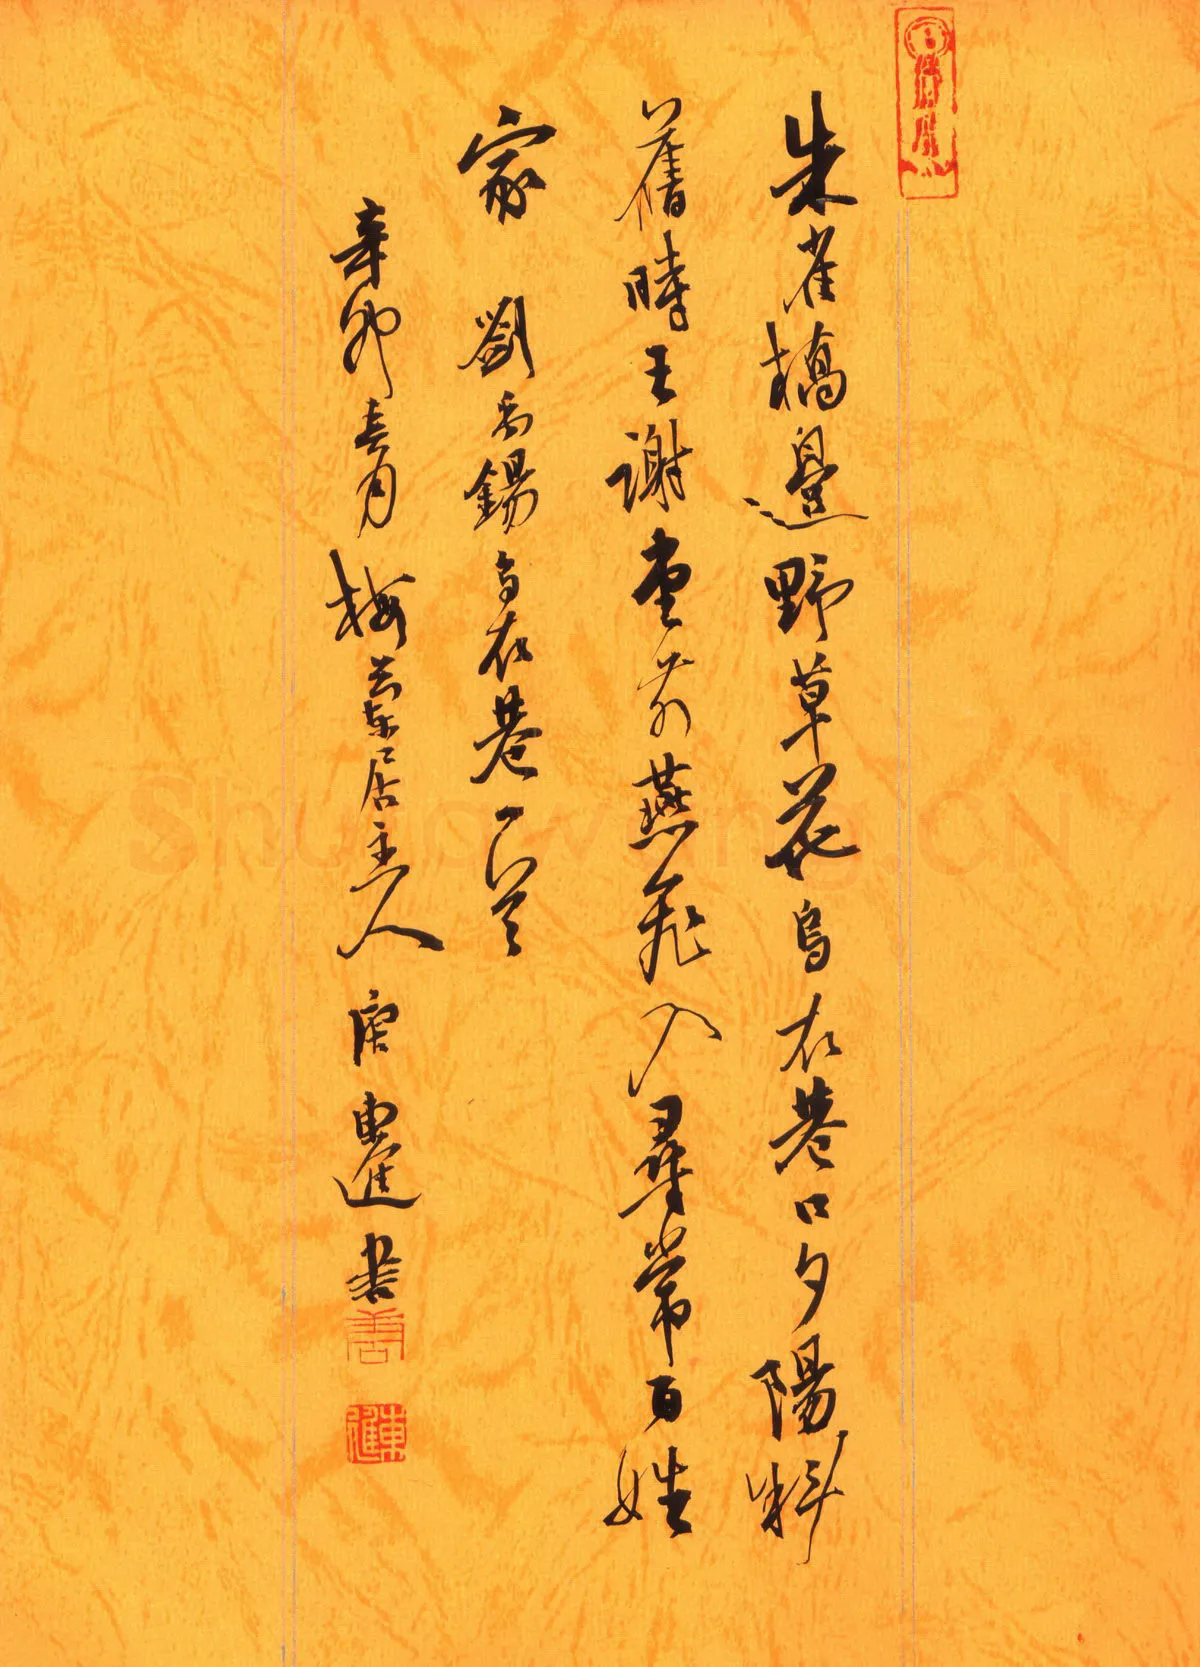 朱雀橋邊野草花烏衣巷口夕陽斜
舊時王謝堂前燕飛入尋常百姓
家 劉禹錫烏衣巷一首
辛卯春月梅蘭居主人唐東進書
唐
東進